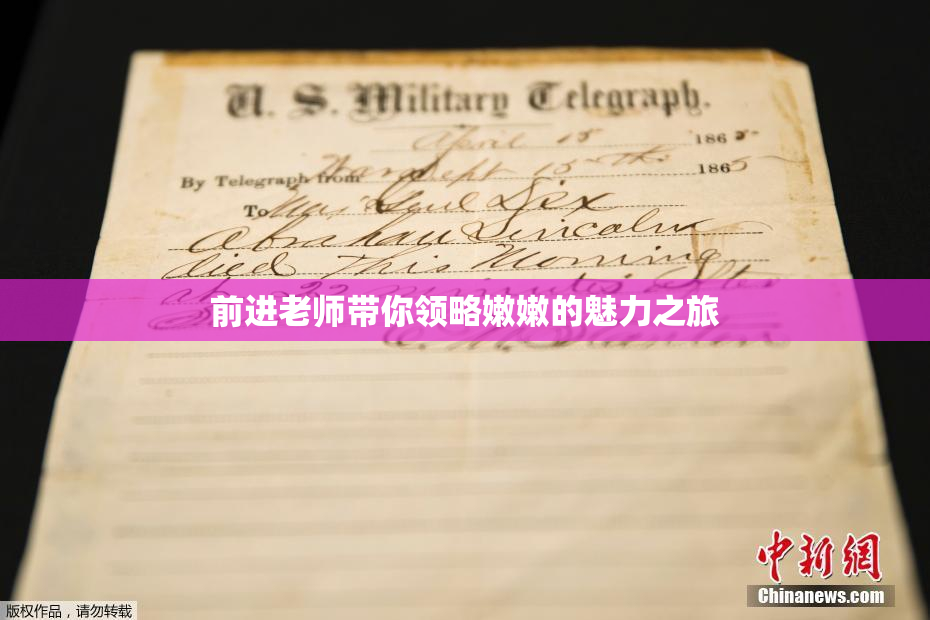 U. S. Military Telegraph.
April 15 1865
By Telegraph from War Dept 15th 1865
To Maj Genl Dix
Abraham Lincoln
died this Morning
at 22 minutes after
前进老师带你领略嫩嫩的魅力之旅
中新網
Chinanews.com
版权作品，请勿转载